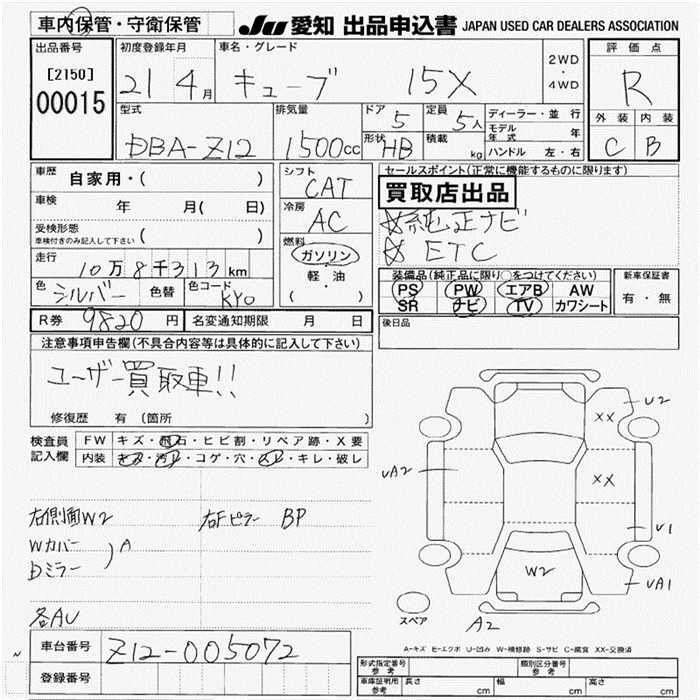 車内保管・守衛保管 JU 愛知 出品申込書 JAPAN USED CAR DEALERS ASSOCIATION
出品番号 初度登録年月 車名・グレード 評価点
[2150] 21 4月 キューブ 15X 2WD・4WD R
00015
型式 排気量 ドア 5 定員 5人 ディーラー・並行 外装 内装
DBA-Z12 1500cc 形状 HB 積載 kg モデル年式 年 C B
ハンドル 左・右
車歴 自家用・( ) シフト CAT セールスポイント(正常に機能するものに限ります)
車検 年 月( 日) 冷房 AC 買取店出品
受検形態 ( ) ☆純正ナビ
車検付きのみ記入して下さい 燃料 ☆ETC
走行 10万8千313km ガソリン
軽・油
( )
色 シルバー 色替 色コード KY0
装備品(純正品に限り○をつけてください) 新車保証書
PS PW エアB AW 有・無
SR ナビ TV カワシート
R券 9820円 名変通知期限 月 日 後日品
注意事項申告欄(不具合内容等は具体的に記入して下さい)
ユーザー買取車!!
修復歴 有 (箇所 )
検査員記入欄 FW キズ・飛石・ヒビ割・リペア跡・X要
内装 キズ・汚れ・コゲ・穴・スレ・キレ・破レ
右側面W2 右Fピラー BP
Wカバー
Dミラー ) A
各AU
U2
XX
UA2 XX
U1
W2 UA1
スペア A2
A-キズ E-エクボ U-凹み W-補修跡 S-サビ C-腐食 XX-交換済
車台番号 Z12-005072
登録番号
形式指定番号 参考 類別区分番号 参考
車庫証明用 参考 長さ cm 幅 cm 高さ cm